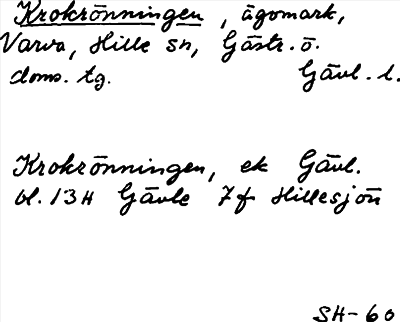 Krokrönningen, ägomark,
Varva, Hille sn, Gästr. ö.
doms. tg. Gävl. l.
Krokrönningen, ek Gävl.
bl. 13H Gävle 7f Hillesjön
SH-60